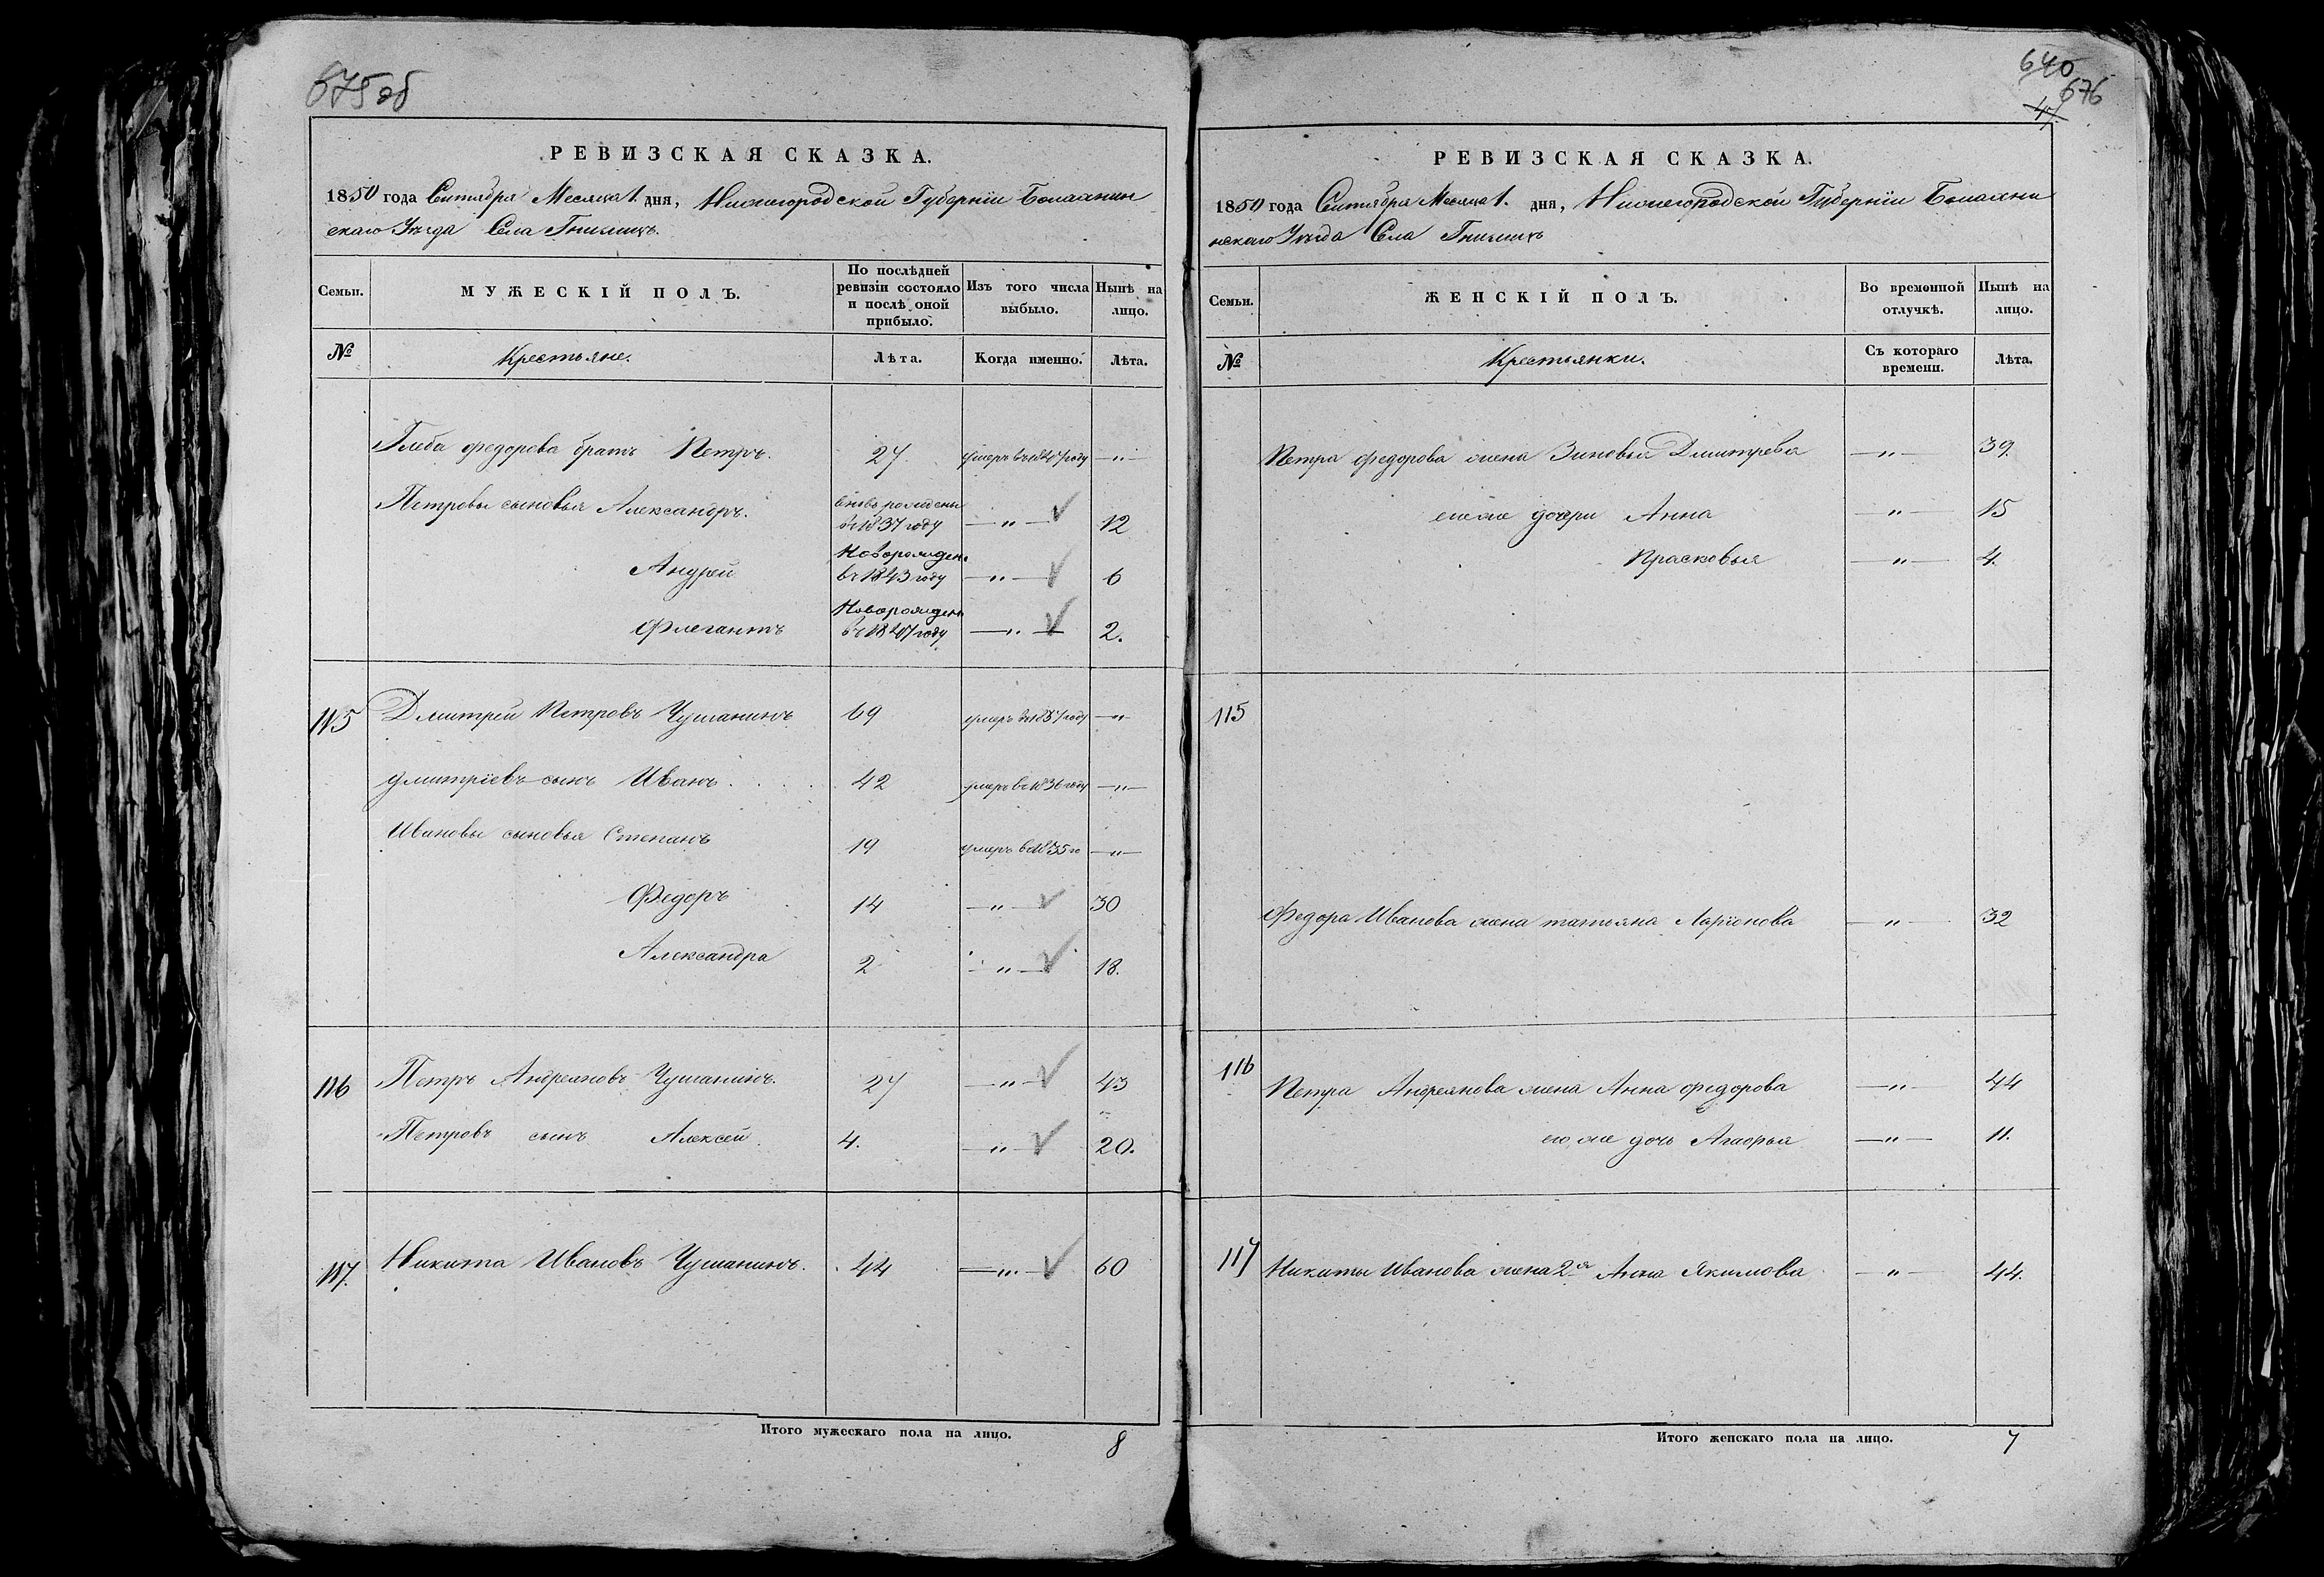 675 об
РЕВИЗСКАЯ СКАЗКА.
1850 года Сентября Месяца 1. дня, Нижегородской Губерніи Балахнин
скаго Уезда Села
Семьи.
МУЖЕСКІЙ ПОЛЪ.
По послѣдней ревизіи состояло и послѣ оной прибыло.
Изъ того числа выбыло.
Нынѣ на лицо.
№
Крестьяне.
Лѣта.
Когда именно.
Лѣта.
Глеба федорова братъ Петръ. 27 умеръ въ году —"—
Петровы сыновья Александръ. вновь рожденъ въ 1837 году —"— 12
Андрей Новорожденъ въ 1843 году —"— 6
Флегантъ Новорожденъ въ 1847 году —"— 2.
115 Дмитрей Петровъ Чушанинъ 69 умеръ въ году —"—
дмитріевъ сынъ Иванъ 42 умеръ въ 1836 году —"—
Ивановы сыновья Степанъ 19 умеръ въ 1835 го —"—
Федоръ 14 —"— 30
Александра 2 —"— 18.
116 Петръ Андреяновъ Чушанинъ. 27 —"— 43
Петровъ сынъ Алексей 4. —"— 20.
117. Никита Ивановъ Чушанинъ. 44 —"— 60
Итого мужескаго пола на лицо. 8
640
676
РЕВИЗСКАЯ СКАЗКА.
1850 года Сентября Месяца 1. дня, Нижегородской Губерніи Балахни
нскаго Уезда Села
Семьи.
ЖЕНСКІЙ ПОЛЪ.
Во временной отлучкѣ.
Нынѣ на лицо.
№
Крестьянки.
Съ котораго времени.
Лѣта.
Петра федорова жена Зиновья Дмитрева —"— 39.
ево же дочери Анна —"— 15
Прасковья —"— 4.
115
Федора Иванова жена татьяна Ларіонова —"— 32
116 Петра Андреянова жена Анна федорова —"— 44
ево же дочь Агафья —"— 11.
117 Никиты Иванова жена 2я Анна Якимова —"— 44.
Итого женскаго пола на лицо. 7